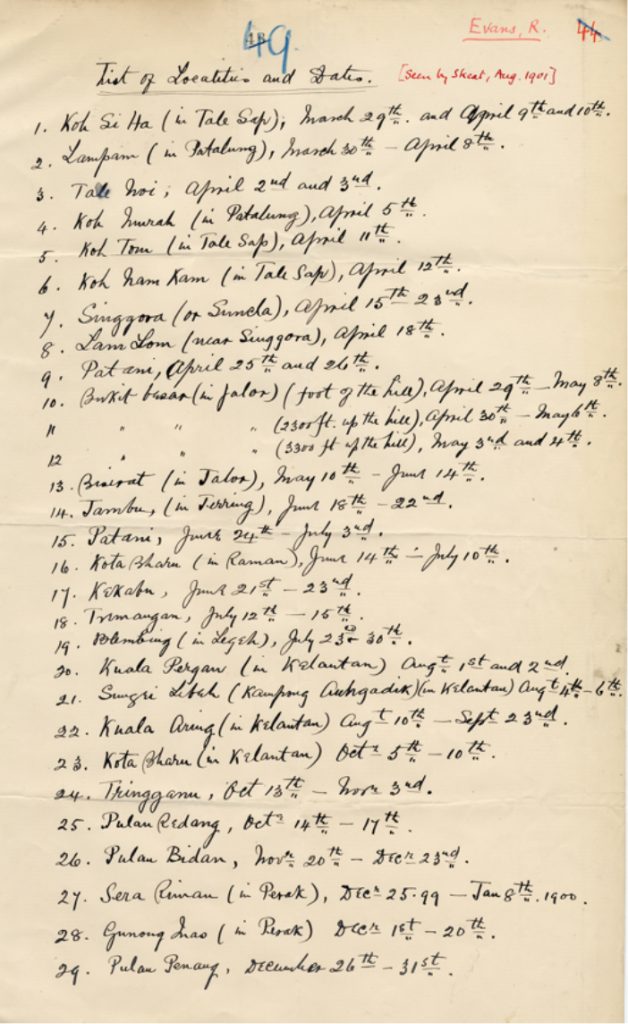 49
Evans, R. 44
List of Localities and Dates. [Seen by Skeat, Aug. 1901]
1. Koh Si Ha (in Tale Sap), March 29th. and April 9th and 10th.
2. Lampam (in Patalung), March 30th - April 8th.
3. Tale Noi; April 2nd and 3rd.
4. Koh (in Patalung), April 5th.
5. Koh Tom (in Tale Sap), April 11th.
6. Koh Nam Kam (in Tale Sap), April 12th.
7. Singgora (or Suncla), April 15th 23rd.
8. Lam Lom (near Singgora), April 18th.
9. Patani, April 25th and 26th.
10. Bukit besar (in Jalor) (foot of the hill), April 29th - May 8th.
11 " " " (2300 ft. up the hill), April 30th - May 6th.
12 " " " (3300 ft up the hill), May 3rd and 4th.
13. Biserat (in Jalor), May 10th - June 14th.
14. Jambu, (in Jerring), June 18th - 22nd.
15. Patani, June 24th - July 3rd.
16. Kota Bharu (in Raman), June 14th - July 10th.
17. Kekabu, June 21st - 23rd.
18. Temangan, July 12th - 15th.
19. Belimbing (in Legeh), July 23 30th.
20. Kuala Pergau (in Kelantan) Augt 1st and 2nd.
21. Sungei (Kampong) (in Kelantan) Augt 4th - 6th.
22. Kuala Aring (in Kelantan) Augt 10th - Sept 23rd.
23. Kota Bharu (in Kelantan) Octr 5th - 10th.
24. Tringganu, Oct 13th - Novr 3rd.
25. Pulau Redang, Octr 14th - 17th.
26. Pulau Bidan, Novr 20th - Decr 23rd.
27. Sera Riman (in Perak), Decr 25.99 - Jan 8th. 1900.
28. Gunong Inas (in Perak) Decr 1st - 20th.
29. Pulau Penang, December 26th - 31st.